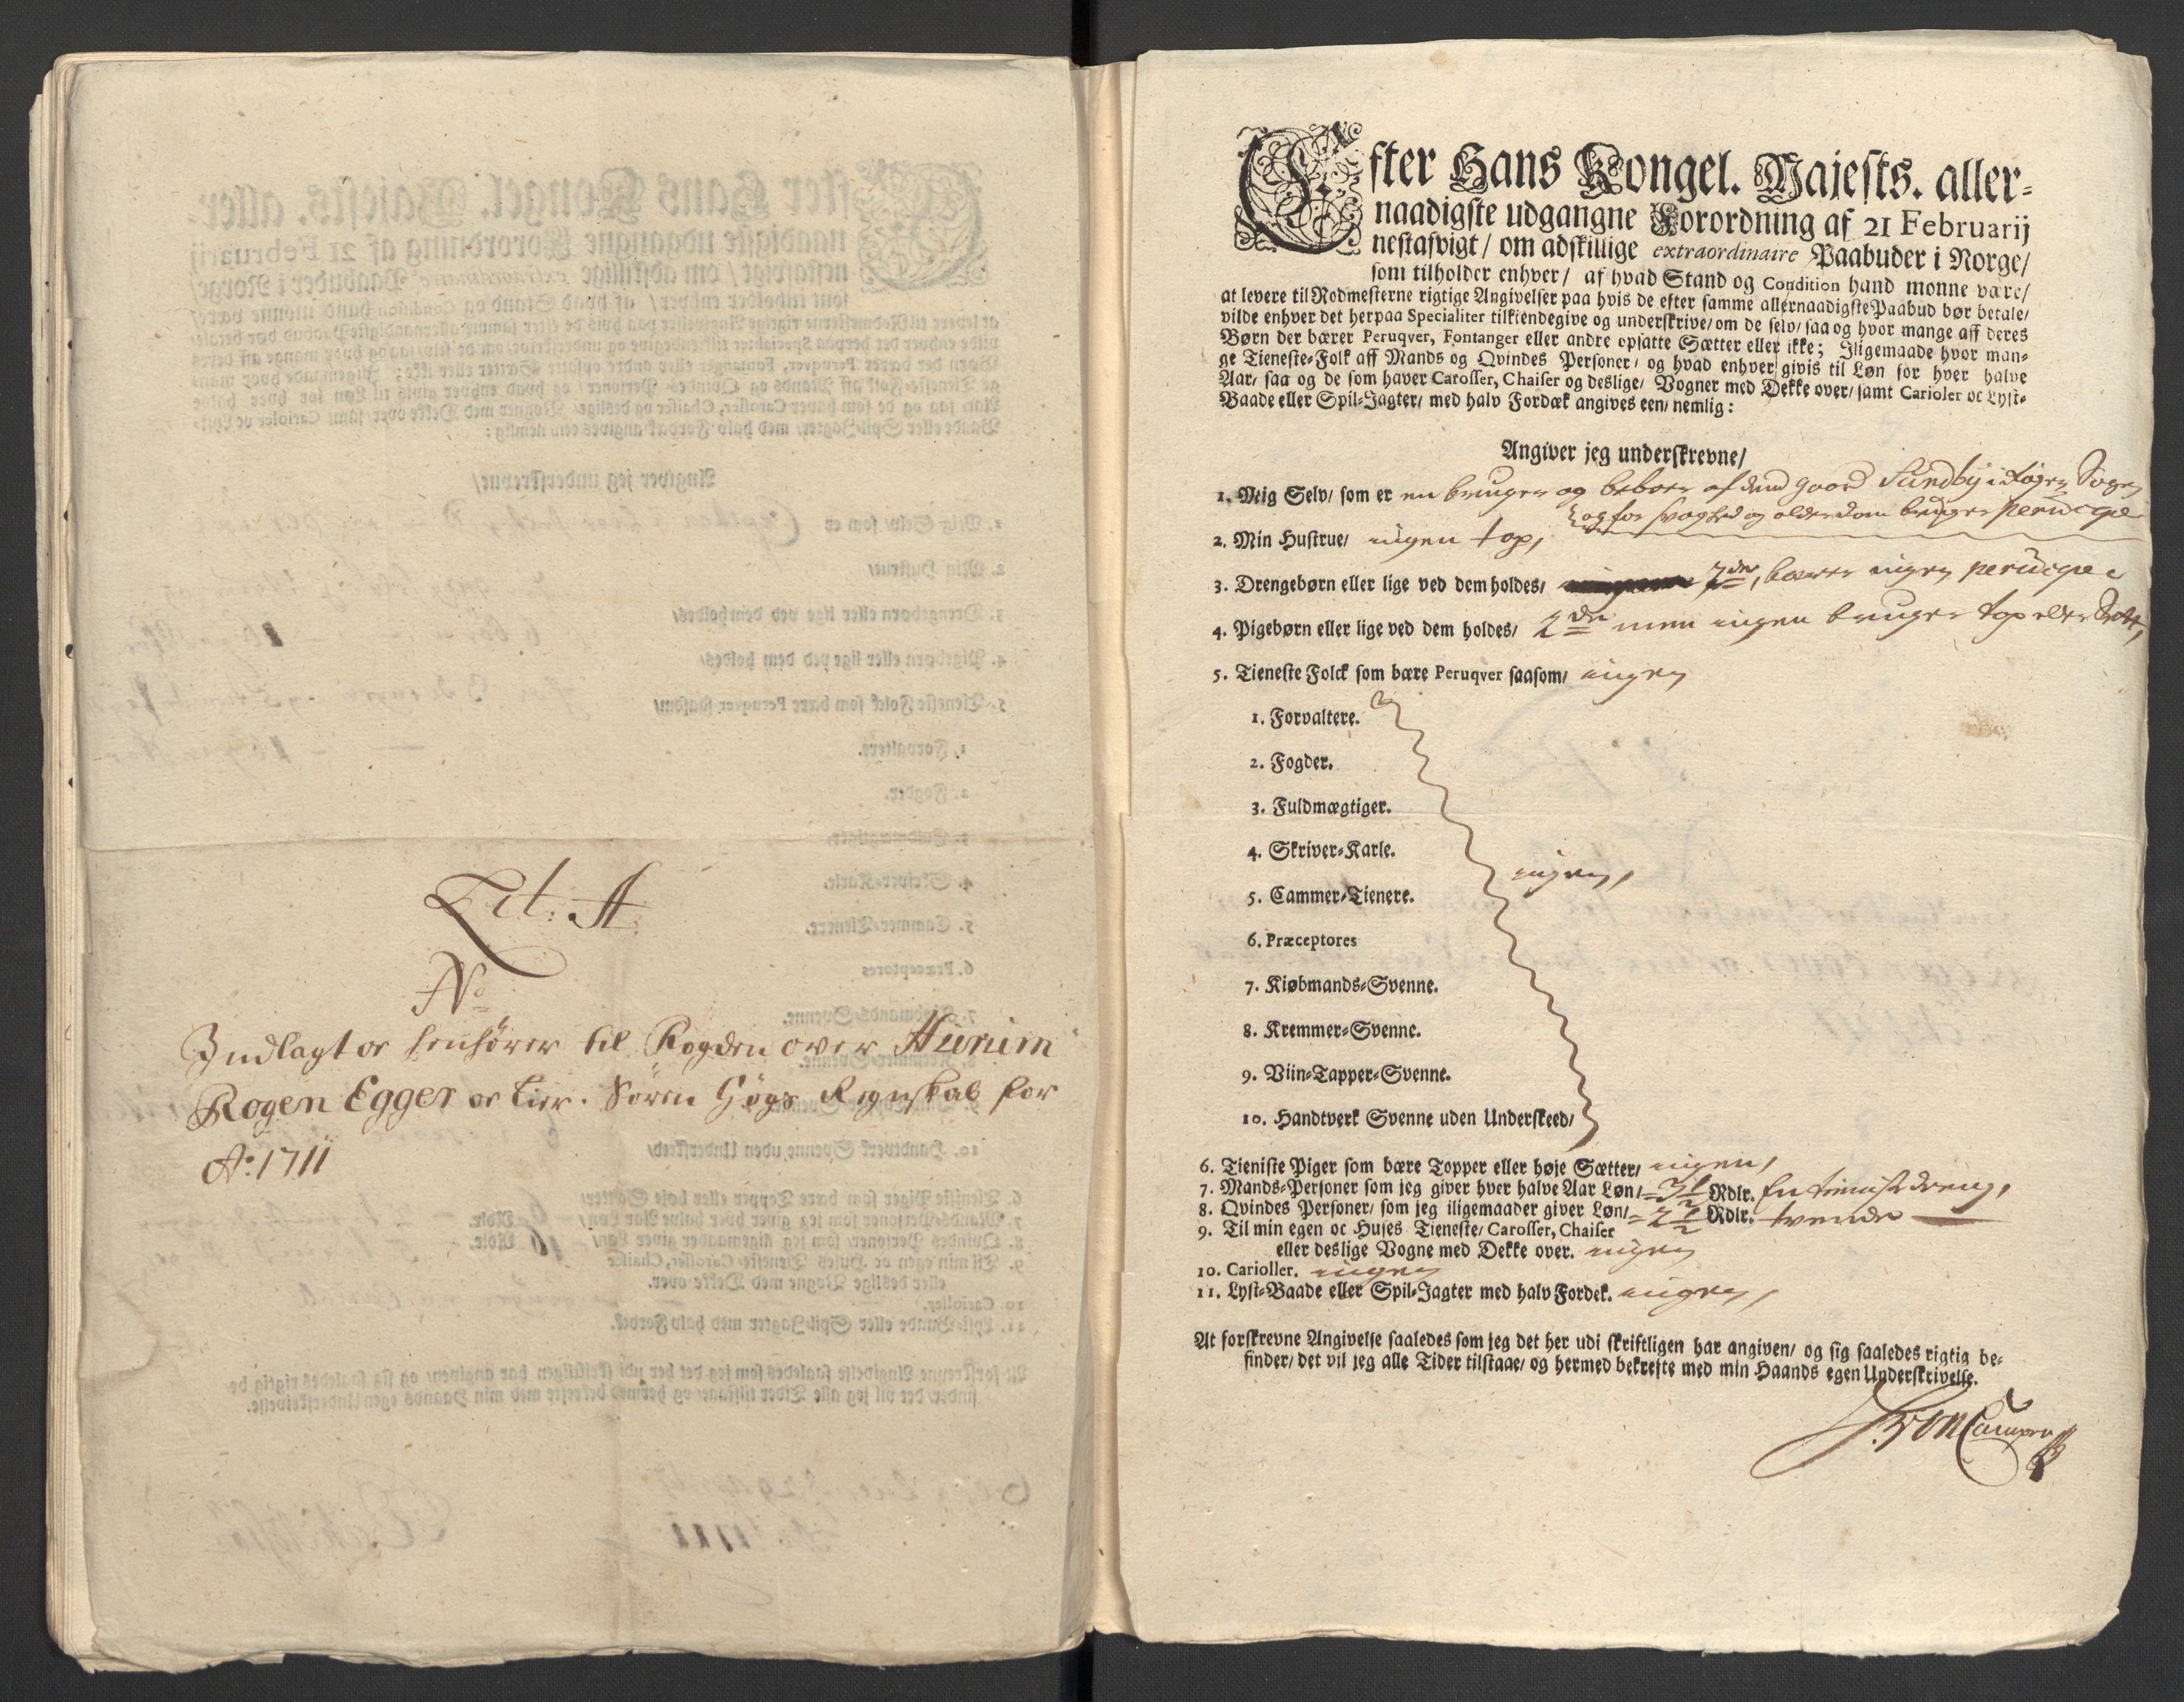 Lit: A
No
Indlagt oc henhörer til Fogden over Hurum
Rogen Egger oc Lier. Sören Högs Regnskab for
Ao: 1711
Efter Hans Kongel. Majests. aller-
naadigste udgangne Forordning af 21 Februarij
nestafvigt/ om adskillige extraordinaire Paabuder i Norge/
som tilholder enhver/ af hvad Stand og Condition hand monne være/
at levere til Rodmesterne rigtige Angivelser paa hvis de efter samme allernaadigste Paabud bør betale/
vilde enhver det herpaa Specialiter tilkiendegive og underskrive/ om de selv/ saa og hvor mange aff deres
Børn der bærer Peruqver, Fontanger eller andre opsatte Sætter eller ikke; Iligemaade hvor man-
ge Tieneste-Folk aff Mands og Qvindes Personer/ og hvad enhver givis til Løn for hver halve
Aar/ saa og de som haver Carosser, Chaiser og deslige/ Vogner med Dekke over/ samt Carioler oc Lyst-
Baade eller Spil-Jagter/ med halv Fordæk angives een/ nemlig:
Angiver jeg underskrevne/
1. Mig Selv/ som er en bruger og beboer af dend goord Sundby i Rogen Sogn
og for svaghed og alderdom bruger peruqve
2. Min Hustrue/ ingen top,
3. Drengebørn eller lige ved dem holdes/ 7de, bærer ingen peruqve
4. Pigebørn eller lige ved dem holdes/ 2de men ingen bruger top eller Sett,
5. Tieneste Folck som bære Peruqver saasom/ ingen
1. Forvaltere.
2. Fogder.
3. Fuldmægtiger.
4. Skriver-Karle.
ingen,
5. Cammer-Tienere.
6. Præceptores
7. Kiøbmands-Svenne.
8. Kremmer-Svenne.
9. Viin-Tapper-Svenne.
10. Handtverk Svenne uden Underskeed/
6. Tieniste Piger som bære Topper eller høje Sætter/ ingen,
7. Mands-Personer som jeg giver hver halve Aar Løn/ 3 1/2 Rdlr. En tienist dreng,
8. Qvindes Personer/ som jeg iligemaader giver Løn/ 2 1/2 Rdlr. tvende
9. Til min egen oc Huses Tieneste/ Carosser, Chaiser
eller deslige Vogne med Dekke over. ingen
10. Carioller. ingen
11. Lyst-Baade eller Spil-Jagter med halv Fordek. ingen,
At forskrevne Angivelse saaledes som jeg det her udi skriftligen har angiven/ og sig saaledes rigtig be-
finder/ det vil jeg alle Tider tilstaae/ og hermed bekrefte med min Haands egen Underskrivelse.
von Campen